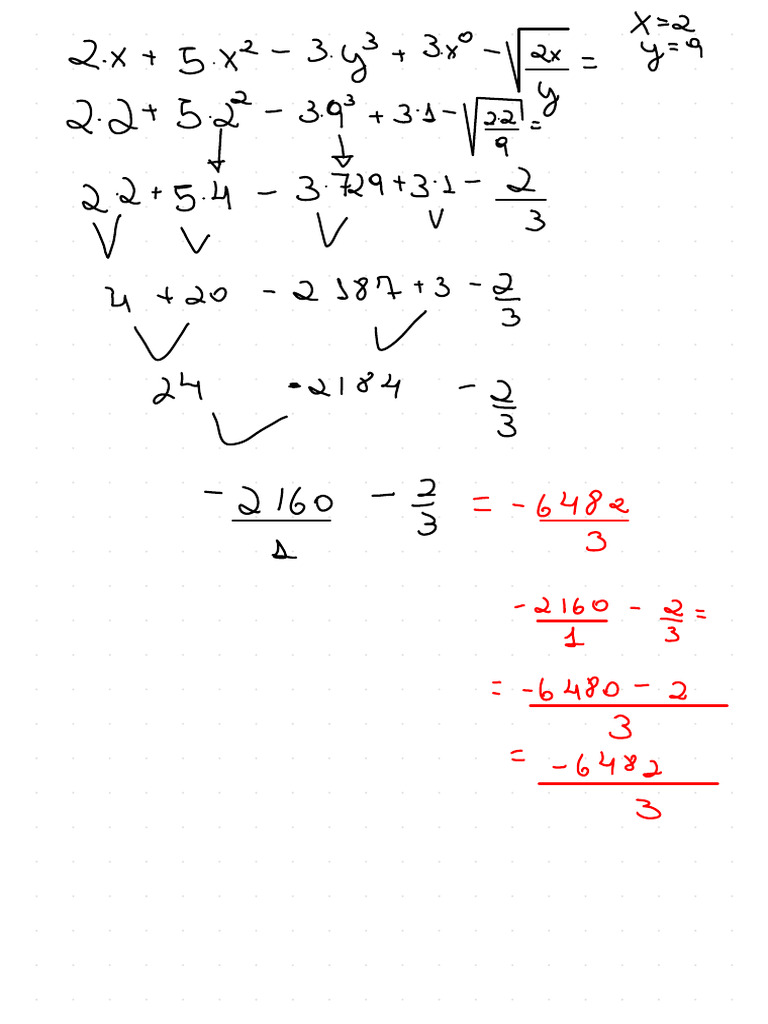 2·x + 5·x² - 3·y³ + 3·x⁰ - √(2x/y) =
x=2
y=9
2·2 + 5·2² - 3·9³ + 3·1 - √(2·2/9) =
2·2 + 5·4 - 3·729 + 3·1 - 2/3
4 + 20 - 2187 + 3 - 2/3
24 -2184 - 2/3
-2160/1 - 2/3 = -6482/3
-2160/1 - 2/3 =
= -6480 - 2/3
= -6482/3